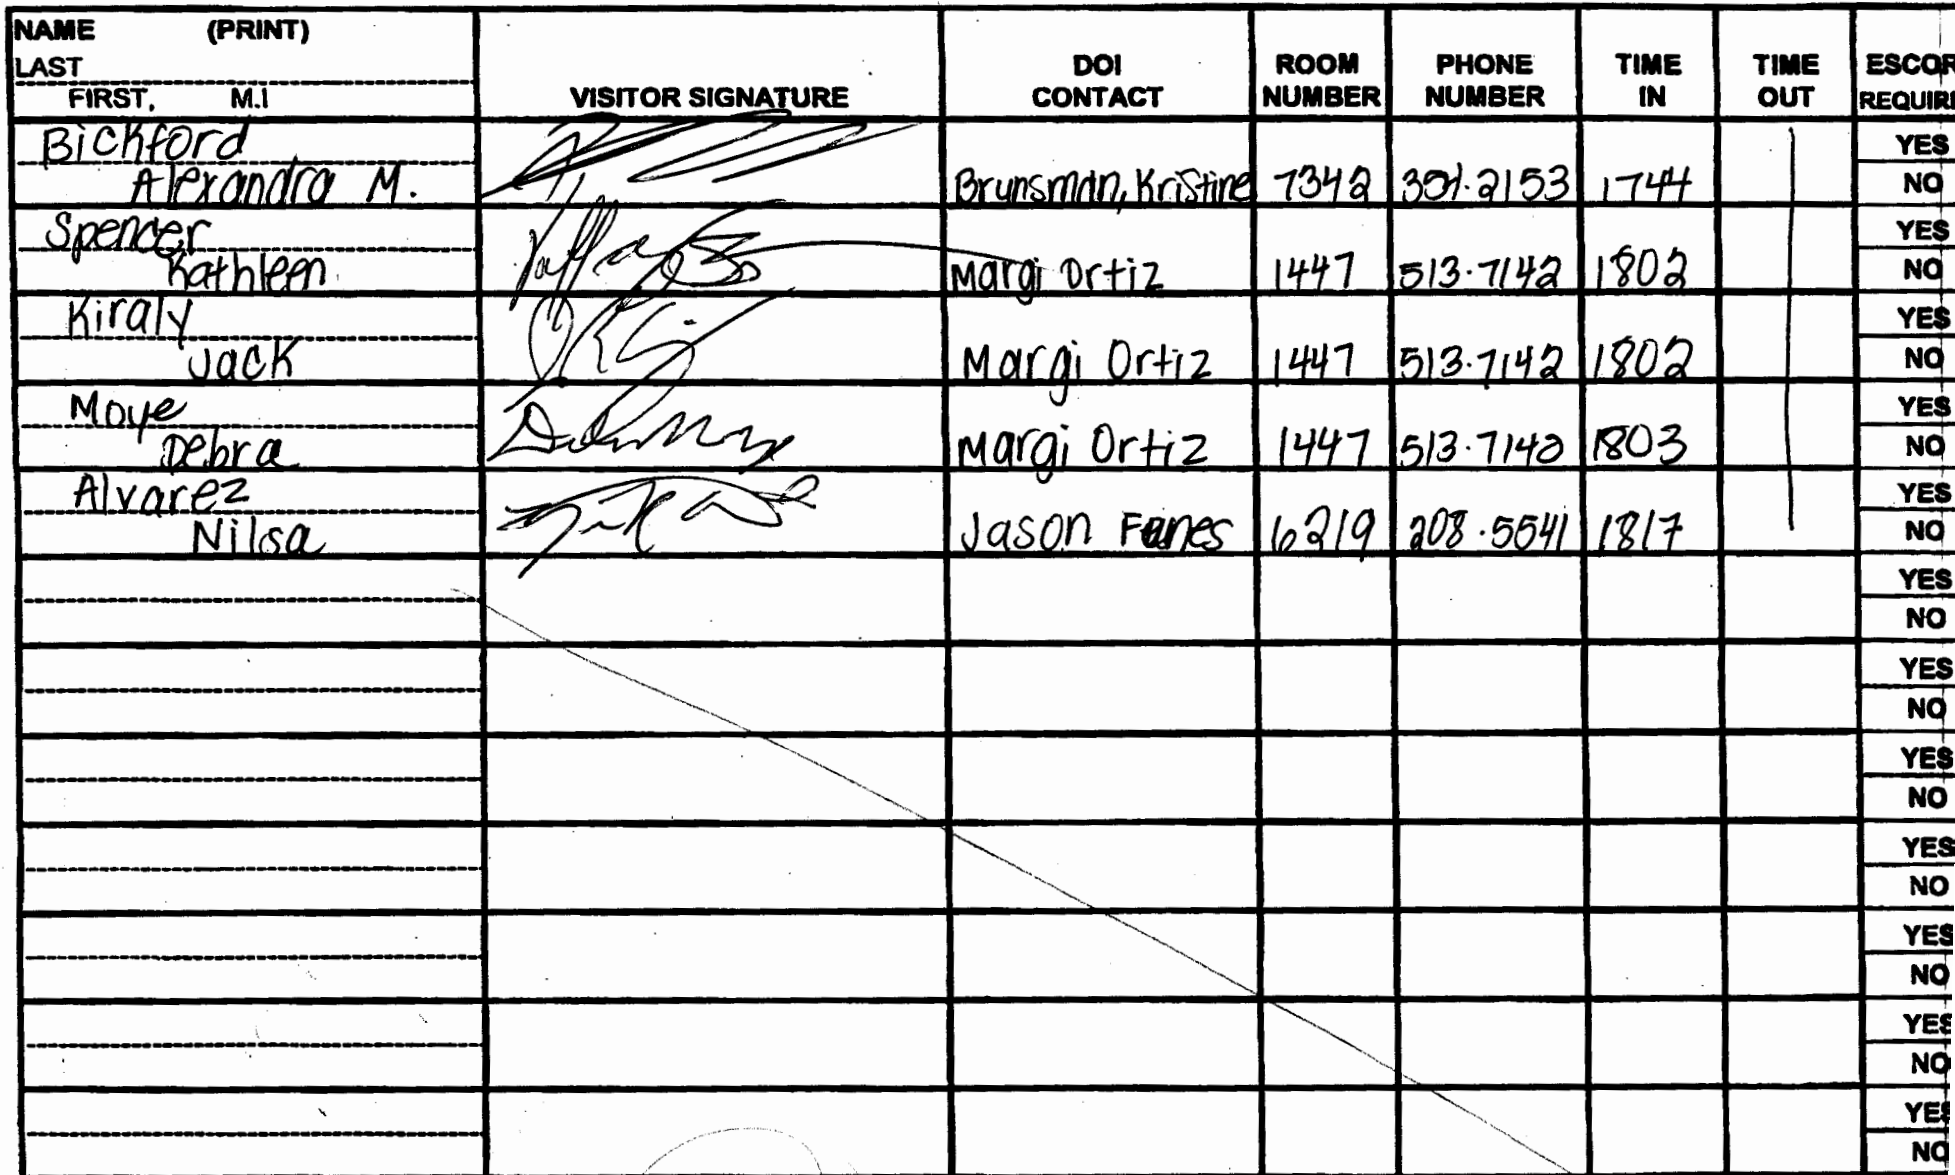 NAME (PRINT)
LAST
FIRST, M.I
VISITOR SIGNATURE
DOI CONTACT
ROOM NUMBER
PHONE NUMBER
TIME IN
TIME OUT
ESCOR
REQUIRE
Bickford
Alexandra M. Brunsman, Kristine 7342 1744
YES
NO
Spencer
Kathleen Margi Ortiz 1447 513.7142 1802
YES
NO
Kiraly
Jack Margi Ortiz 1447 513.7142 1802
YES
NO
Moye
Debra Margi Ortiz 1447 513.7142 1803
YES
NO
Alvarez
Nilsa Jason 6219 208.5541 1817
YES
NO
YES
NO
YES
NO
YES
NO
YES
NO
YES
NO
YES
NO
YES
NO